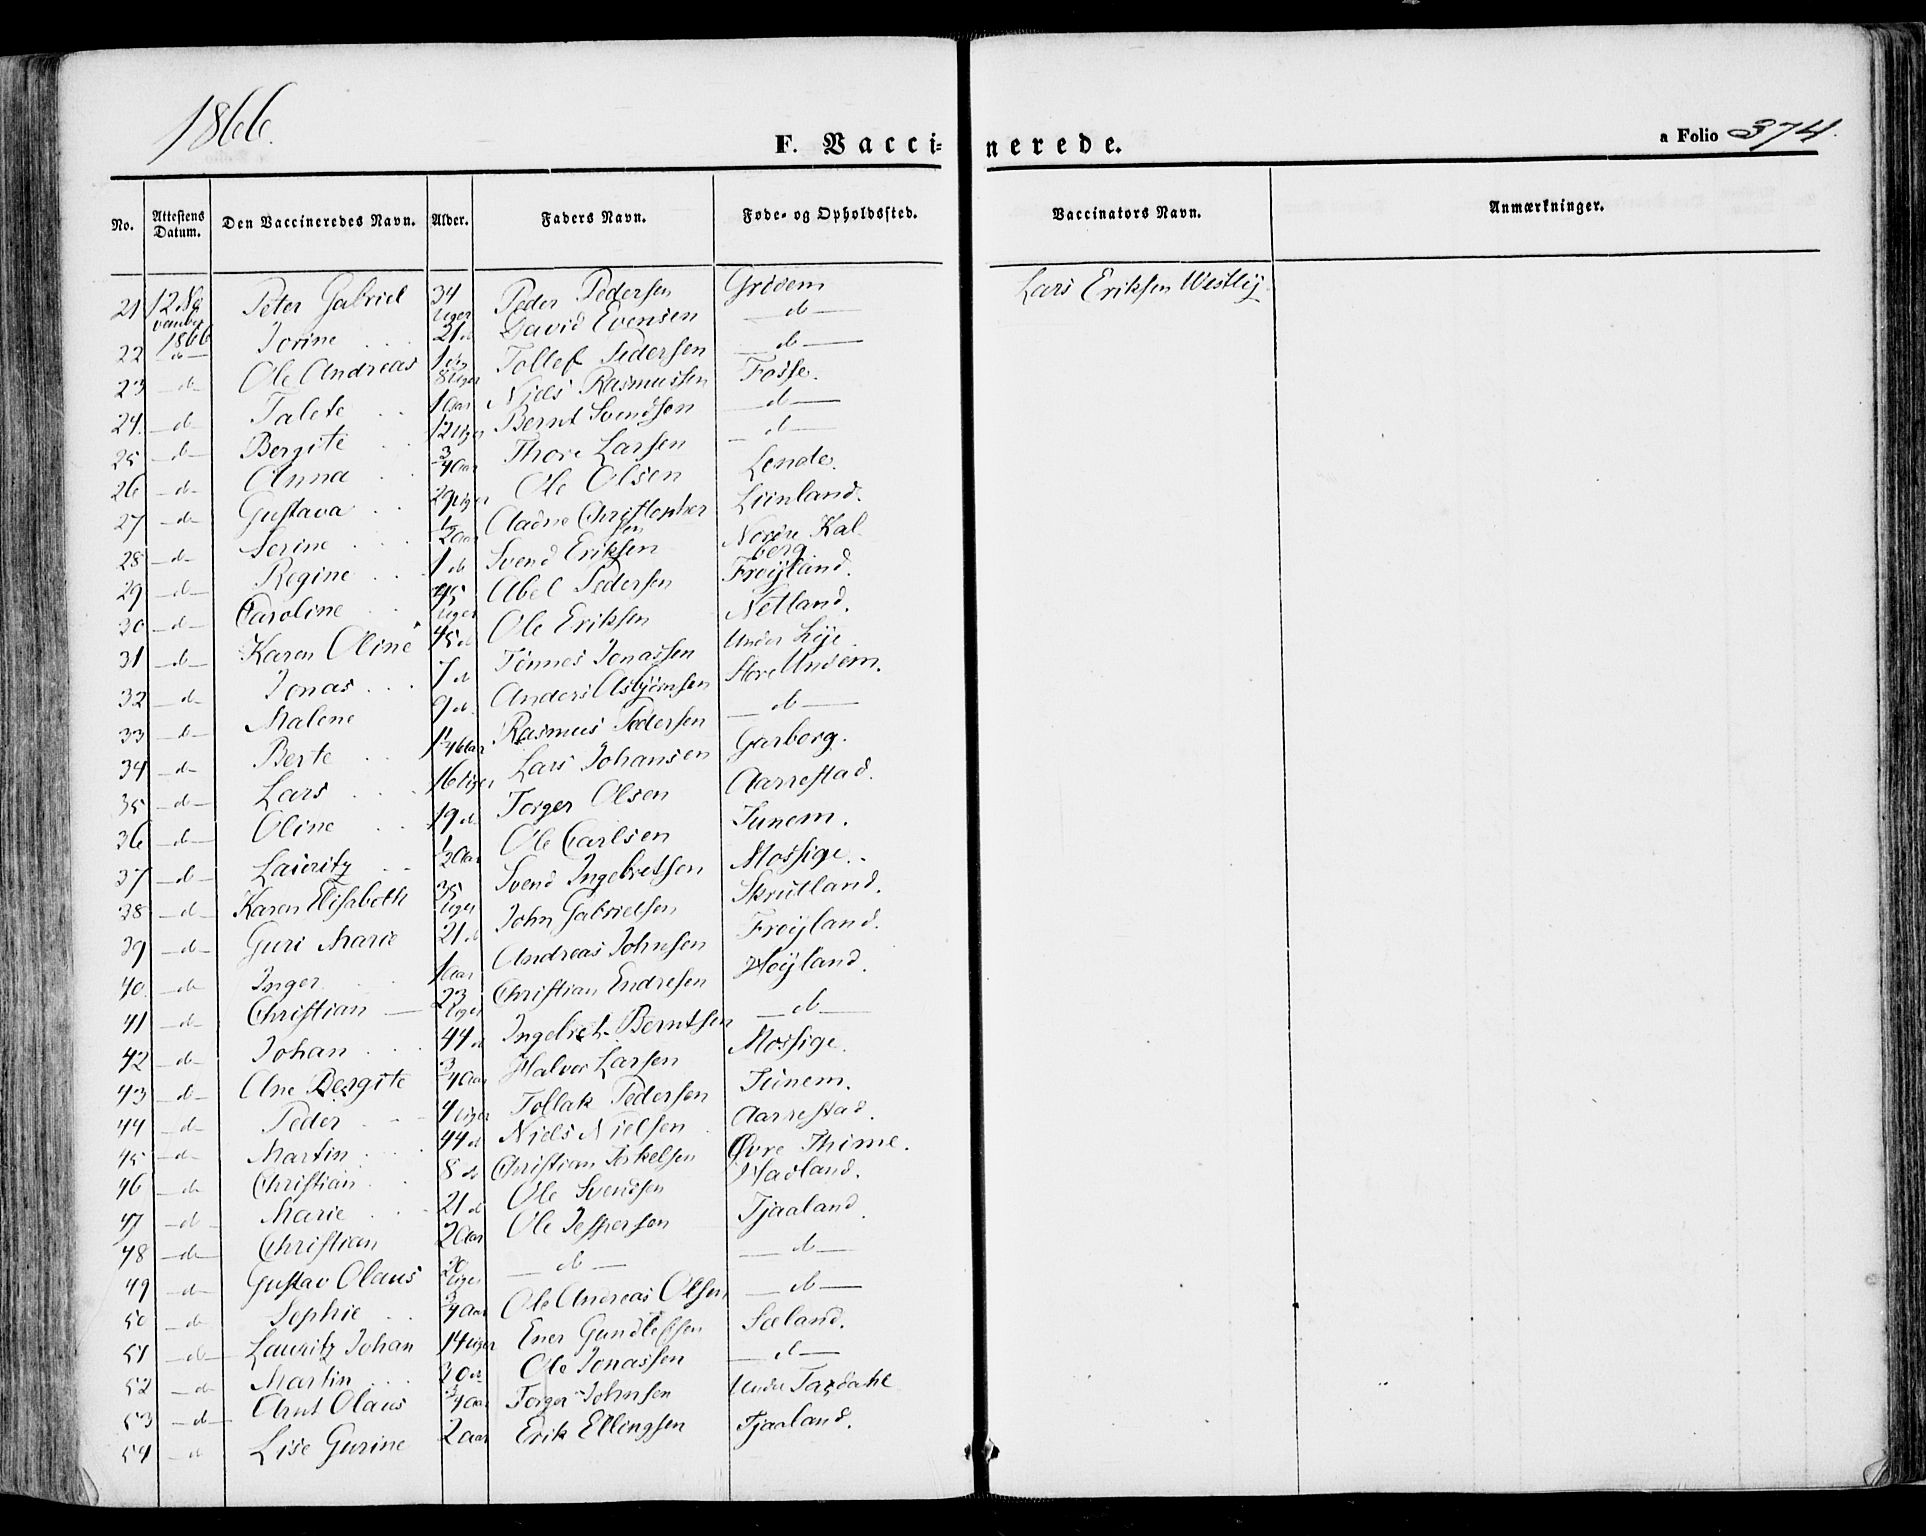 1866.
F. Vaccinerede.
a Folio 374.
No. Attestens Datum. Den Vaccineredes Navn. Alder. Faders Navn. Føde- og Opholdssted. Vaccinators Navn. Anmærkninger.
21 12 November 1866 Peter Gabriel 34 Uger Peder Pedersen Grødem Lars Eriksen Westly
22 -d- Jorine 21 d David Evensen -d-
23 -d- Ole Andreas Tollef Pedersen -d-
24. -d- Talete 1 Aar Niels Rasmussen Fosse.
25 -d- Bergite 12 Uger Bernt Svendsen -d-
26 -d- Anna 3/4 Aar Thore Larsen -d-
27 -d- Gustava 29 Uger Ole Olsen Lende.
28 -d- Serine 1/2 Aar Aadne Christophersen Lünland.
29 -d- Regine 1 d Svend Eriksen Nordre Kalberg
30 -d- Caroline 45 Uger Abel Pedersen Frøyland.
31 -d- Karen Oline 45 d Ole Eriksen Netland.
32 -d- Jonas 7 d Tønnes Jonassen Under Lye
33 -d- Malene 9 d. Anders Asbjørnsen Store Undem.
34 -d- Berte Rasmus Pedersen -d-
35 -d- Lars 16 Uger Lars Johansen Garborg.
36 -d- Oline 19 d. Torger Olsen Aarrestad.
37 -d- Lauritz 1/2 Aar Ole Carlsen Tunem.
38 -d- Karen Elisabeth 35 Uger Svend Ingebretsen Mossige.
39 -d- Guri Marie 21 d John Gabrielsen Skrutland.
40. -d- Inger 1 Aar Andreas Johnsen Frøyland.
41 -d- Christian 23 Uger Christian Endresen Høyland.
42 -d- Johan 44 d Ingebret Berntsen -d-
43 -d- Ane Bergite 3/4 Aar Halvor Larsen Mossige.
44 -d- Peder 4 Uger Tollak Pedersen Tunem.
45 -d- Martin 44 d Niels Nielsen Aarrestad.
46 -d- Christian 8 d Christian Torkelsen Øvre Thime.
47 -d- Marie 21 d Ole Svendsen Hadland.
48 -d- Christian 2 Aar Ole Jespersen Tjaaland.
49 -d- Gustav Olaus 20 Uger -d- -d-
50 -d- Sophie 3/4 Aar Ole Andreas Olsen -d-
51 -d- Lauritz Johan 14 Uger Ener Gundlefsen Sæland.
52 -d- Martin 30 d Ole Jonassen -d-
53 -d- Arnt Olaus 3/4 Aar Torger Johnsen Under Taxdahl
54 d Lise Gurine 2 Aar Erik Ellingsen Tjaaland.